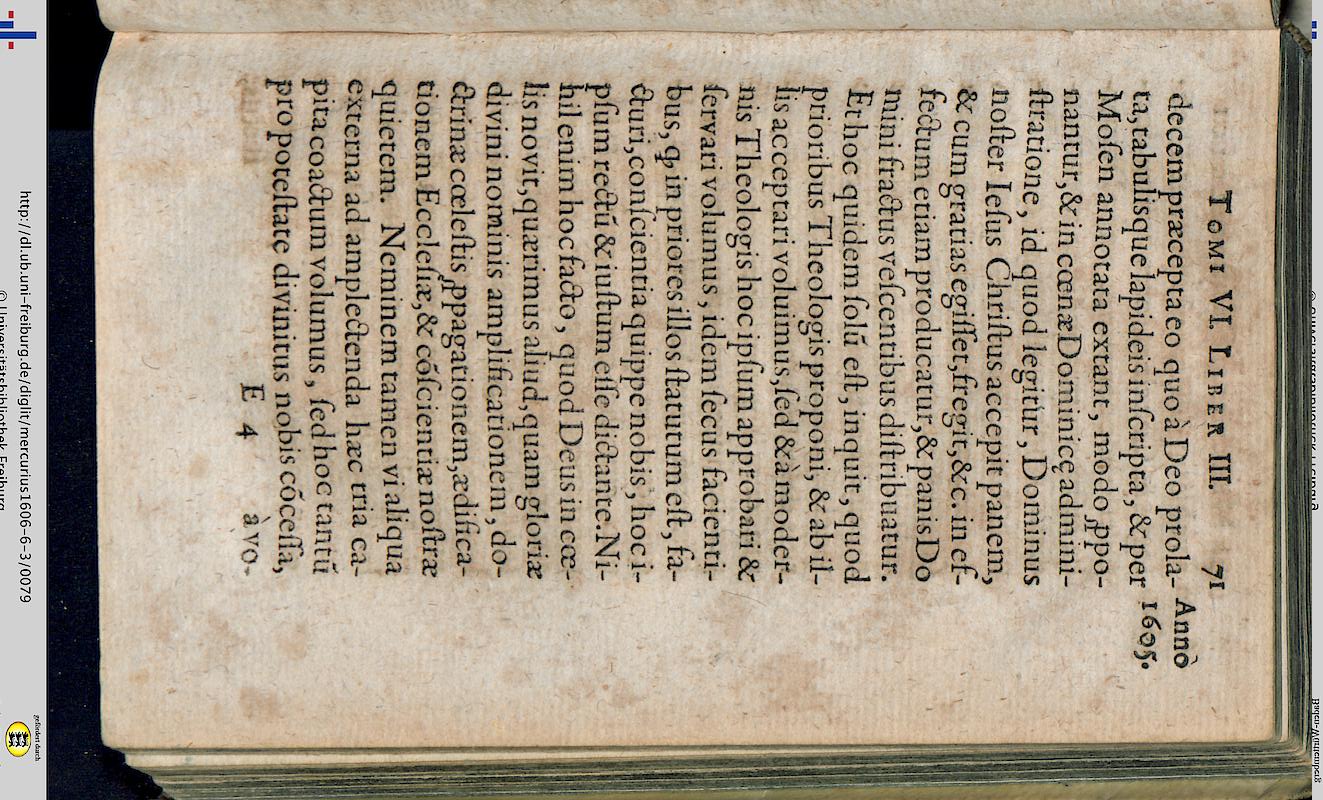 TOMI VI. LIBER III. 71
decem præcepta eo quo à Deo prola- Annò
ta, tabulisque lapideis inſcripta, & per 1605.
Moſen annotata extant, modo ꝓpo-
nantur, & in cœnæ Dominicę admini-
ſtratione, id quod legitur, Dominus
noſter Ieſus Chriſtus accepit panem,
& cum gratias egiſſet, fregit, &c. in ef-
fectum etiam producatur, & panis Do
mini fractus veſcentibus diſtribuatur.
Et hoc quidem ſolũ eſt, inquit, quod
prioribus Theologis proponi, & ab il-
lis acceptari voluimus, ſed & à moder-
nis Theologis hoc ipſum approbari &
ſervari volumus, idem ſecus facienti-
bus, qꝫ in priores illos ſtatutum eſt, fa-
cturi, conſcientia quippe nobis, hoc i-
pſum rectũ & iuſtum eſſe dictante. Ni-
hil enim hoc facto, quod Deus in cœ-
lis novit, quærimus aliud, quam gloriæ
divini nominis amplificationem, do-
ctrinæ cœleſtis ꝓpagationem, ædifica-
tionem Eccleſiæ, & cõſcientiæ noſtræ
quietem. Neminem tamen vi aliqua
externa ad amplectenda hæc tria ca-
pita coactum volumus, ſed hoc tantũ
pro poteſtate divinitus nobis cõceſſa,
E 4 àvo-
http://dl.ub.uni-freiburg.de/diglit/mercurius1606-6-3/0079
© Universitätsbibliothek Freiburg
gefördert durch